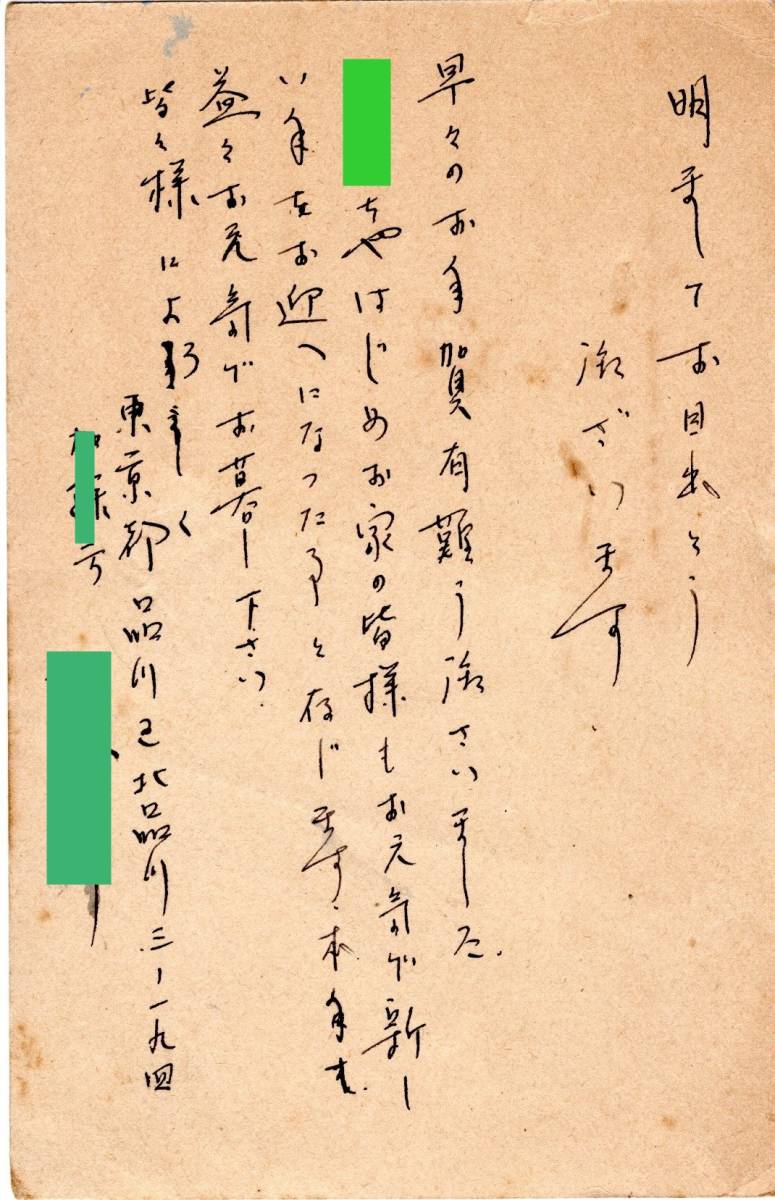 明まして お目出とう
御ざいます
早々のお年賀有難う御さいました.
ちやはじめお家の皆様もお元気で新し
い年をお迎へになった事と存じます、本年も
益々お元気でお暮し下さい.
皆々様によろしく
東京都品川区北品川三ノ一九四
方